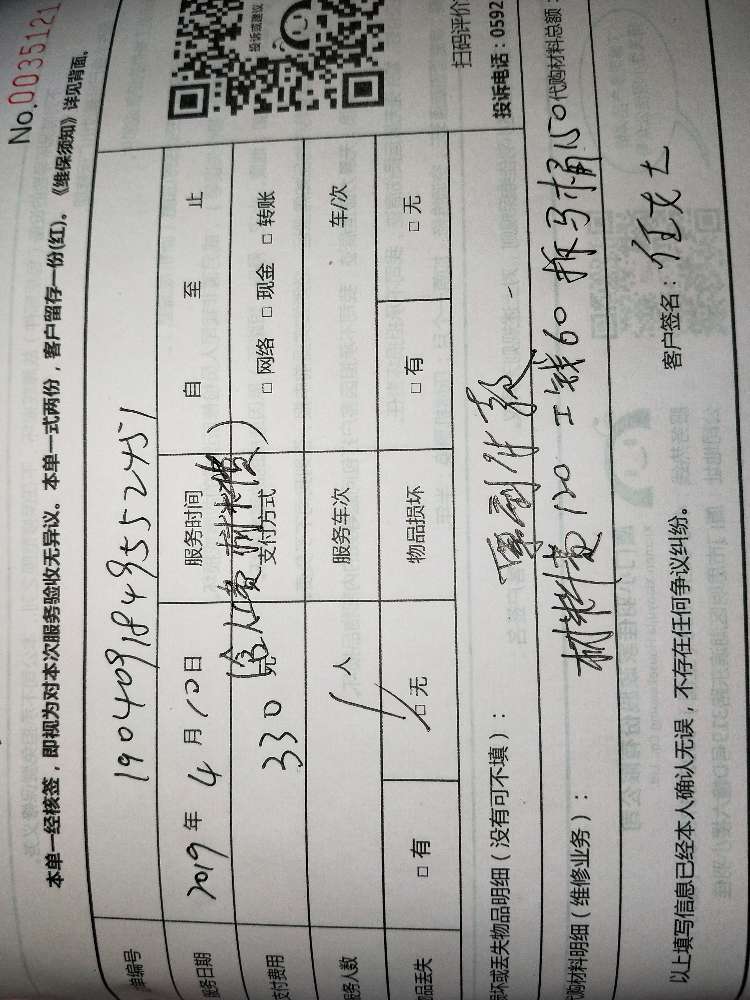 No.0035121
本单一经核签，即视为对本次服务验收无异议。本单一式两份，客户留存一份(红)。《维保须知》详见背面。
投诉或建议
单编号 1904091849552451
服务日期 2019年4月10日 服务时间 自 至 止
支付费用 330元(含人工费 材料费) 支付方式 □ 网络 □ 现金 □ 转账
服务人数 人 服务车次 车/次
物品丢失 □ 有 □ 无 物品损坏 □ 有 □ 无
扫码评价
投诉电话：0592
损坏或丢失物品明细（没有可不填）：
代购材料明细（维修业务）：材料费120 工钱60 拆马桶150 代购材料总额：
以上填写信息已经本人确认无误，不存在任何争议纠纷。 客户签名：任女士